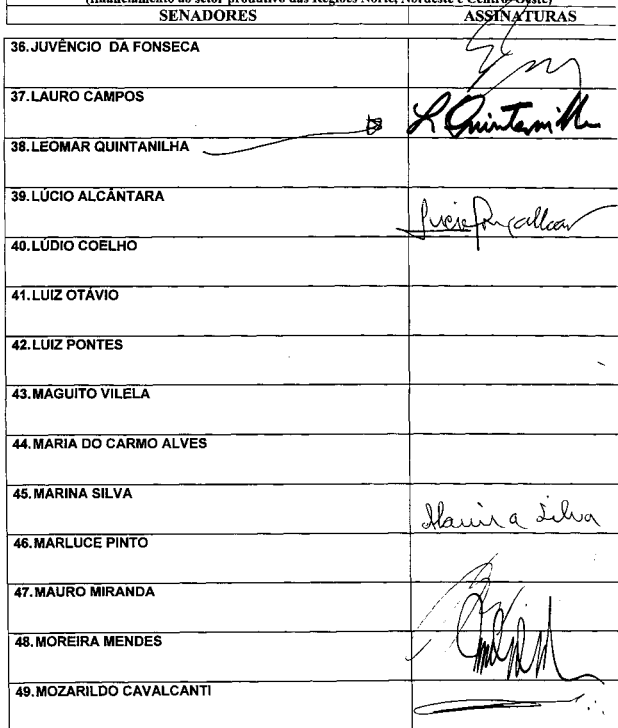 (financiamento ao setor produtivo das Regiões Norte, Nordeste e Centro-Oeste)
SENADORES ASSINATURAS
36. JUVÊNCIO DA FONSECA
37. LAURO CAMPOS
L Quintanilha
38. LEOMAR QUINTANILHA
39. LÚCIO ALCÂNTARA
40. LÚDIO COELHO
41. LUIZ OTÁVIO
42. LUIZ PONTES
43. MAGUITO VILELA
44. MARIA DO CARMO ALVES
45. MARINA SILVA
Marina Silva
46. MARLUCE PINTO
47. MAURO MIRANDA
48. MOREIRA MENDES
49. MOZARILDO CAVALCANTI